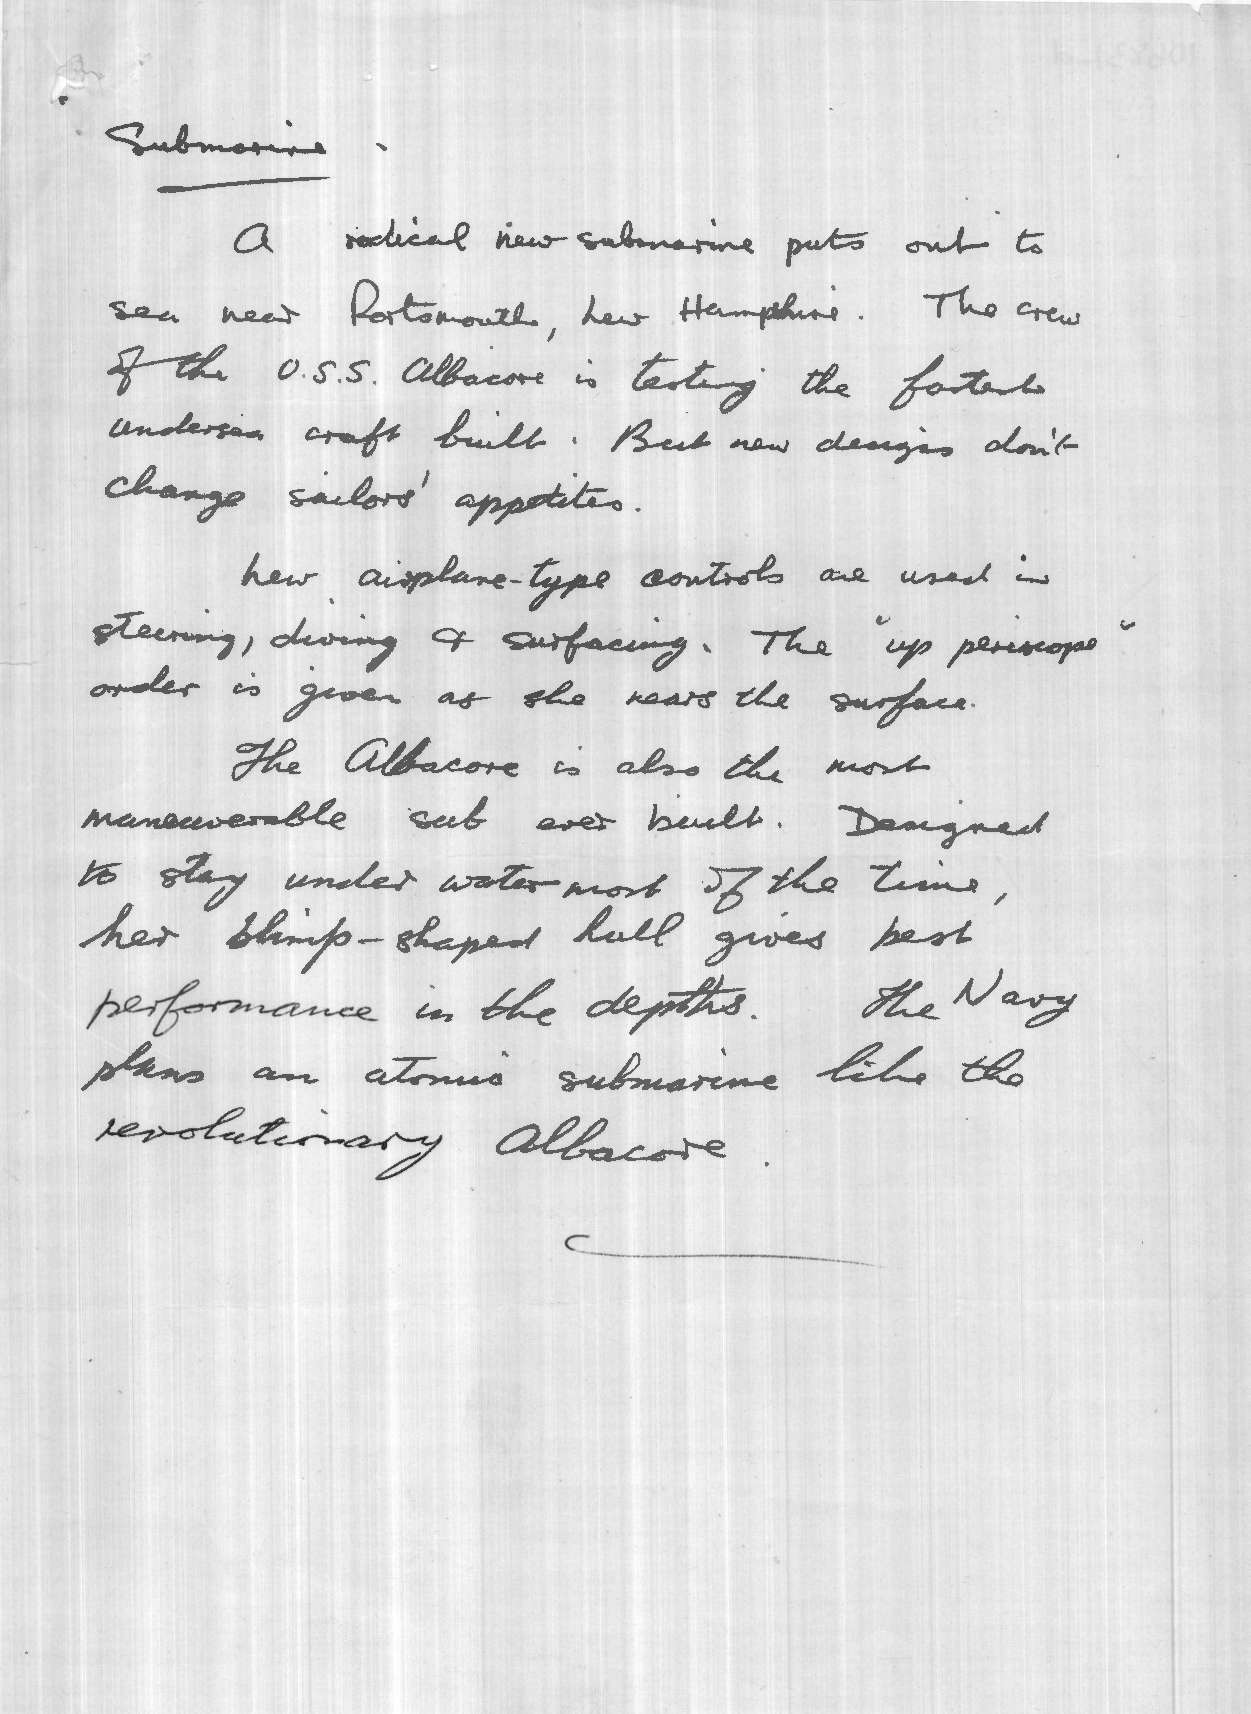 Submarine.
A radical new submarine puts out to
sea near Portsmouth, New Hampshire. The crew
of the U.S.S. Albacore is testing the fastest
undersea craft built. But new designs don't
change sailors' appetites.
New airplane-type controls are used in
steering, diving & surfacing. The "up periscope"
order is given as she nears the surface.
The Albacore is also the most
maneuverable sub ever built. Designed
to stay under water most of the time,
her blimp-shaped hull gives best
performance in the depths. The Navy
plans an atomic submarine like the
revolutionary Albacore.